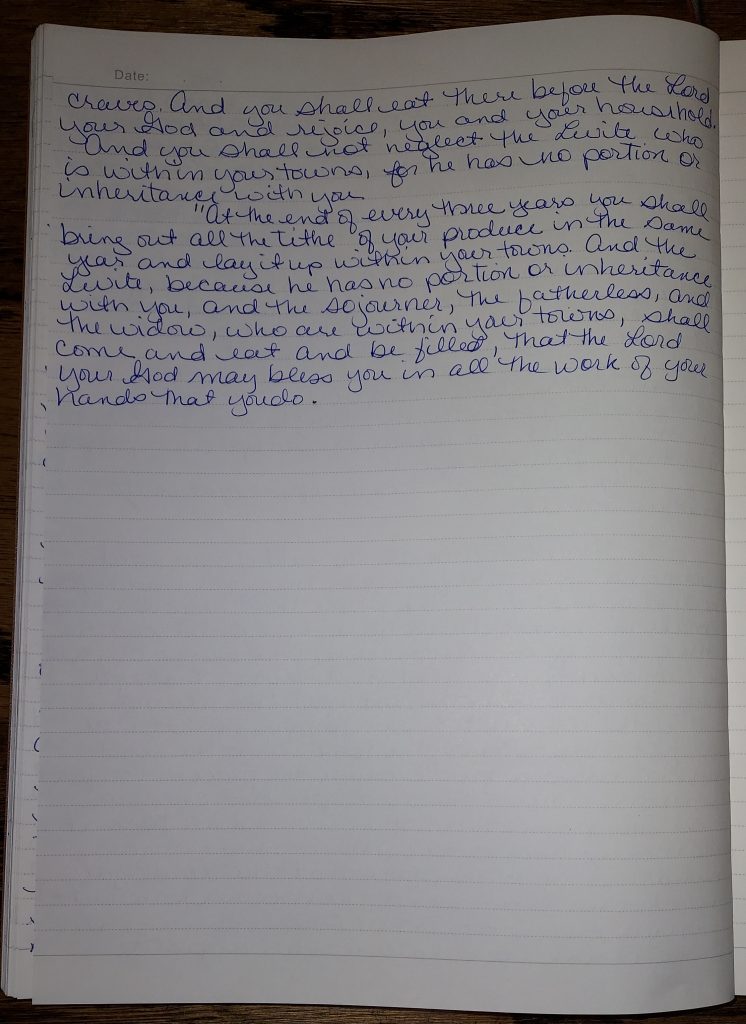 Date:
craves. And you shall eat there before the Lord
your God and rejoice, you and your household.
And you shall not neglect the Levite who
is within your towns, for he has no portion or
inheritance with you
"At the end of every three years you shall
bring out all the tithe of your produce in the same
year and lay it up within your towns. And the
Levite, because he has no portion or inheritance
with you, and the sojourner, the fatherless, and
the widow, who are within your towns, shall
come and eat and be filled, that the Lord
your God may bless you in all the work of your
hands that you do.